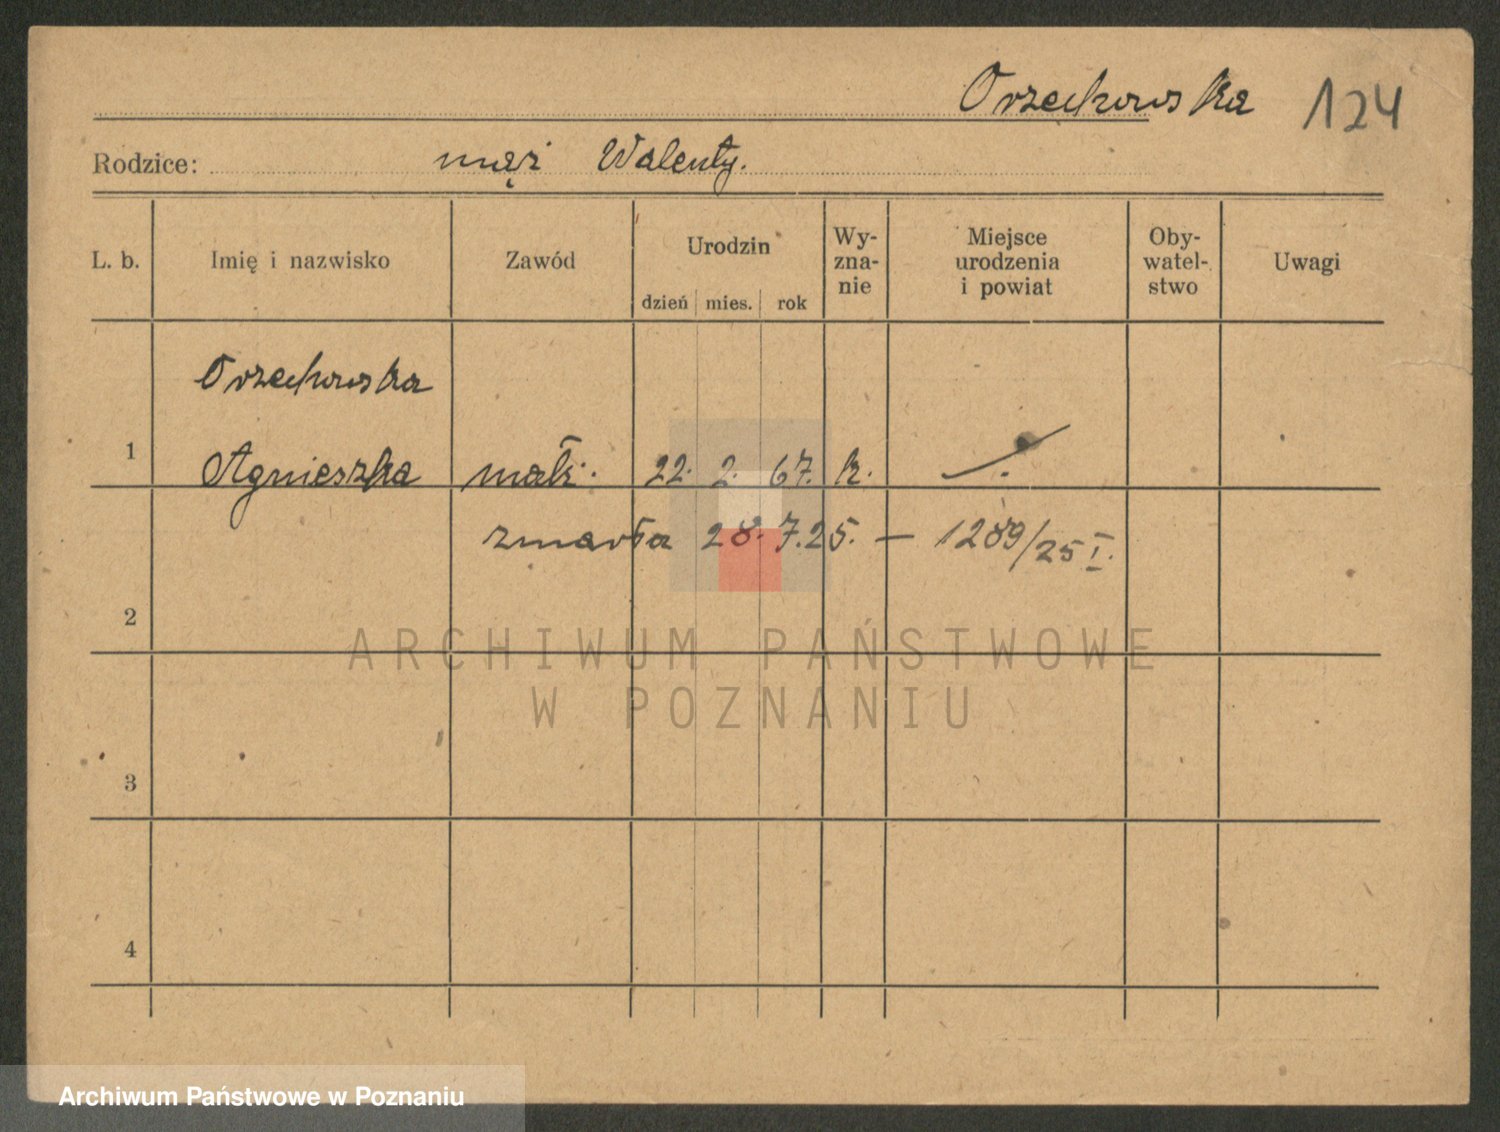 Orzechowska 124
Rodzice: mąż Walenty.
L. b. Imię i nazwisko Zawód Urodzin dzień mies. rok Wy-zna-nie Miejsce urodzenia i powiat Oby-watel-stwo Uwagi
Orzechowska
1 Agnieszka małż. 22. 2. 67. k.
zmarła 28. 7. 25. — 1289/25 I.
2
ARCHIWUM PAŃSTWOWE
W POZNANIU
3
4
Archiwum Państwowe w Poznaniu